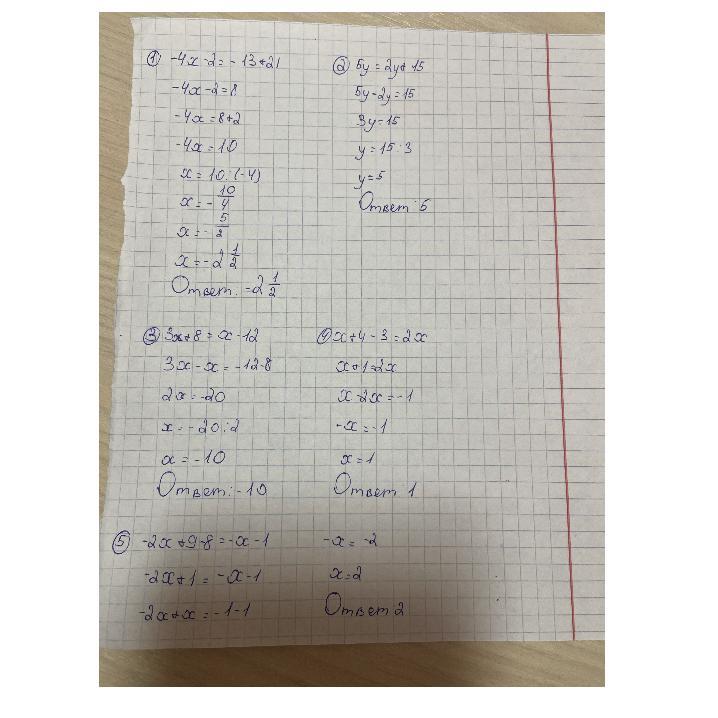 ① -4x-2=-13+21
-4x-2=8
-4x=8+2
-4x=10
x=10:(-4)
x=-10/4
x=-5/2
x=-2 1/2
Ответ: -2 1/2
② 5y=2y+15
5y-2y=15
3y=15
y=15:3
y=5
Ответ: 5
③ 3x+8=x-12
3x-x=-12-8
2x=-20
x=-20:2
x=-10
Ответ: -10
④ x+4-3=2x
x+1=2x
x-2x=-1
-x=-1
x=1
Ответ 1
⑤ -2x+9-8=-x-1
-2x+1=-x-1
-2x+x=-1-1
-x=-2
x=2
Ответ 2